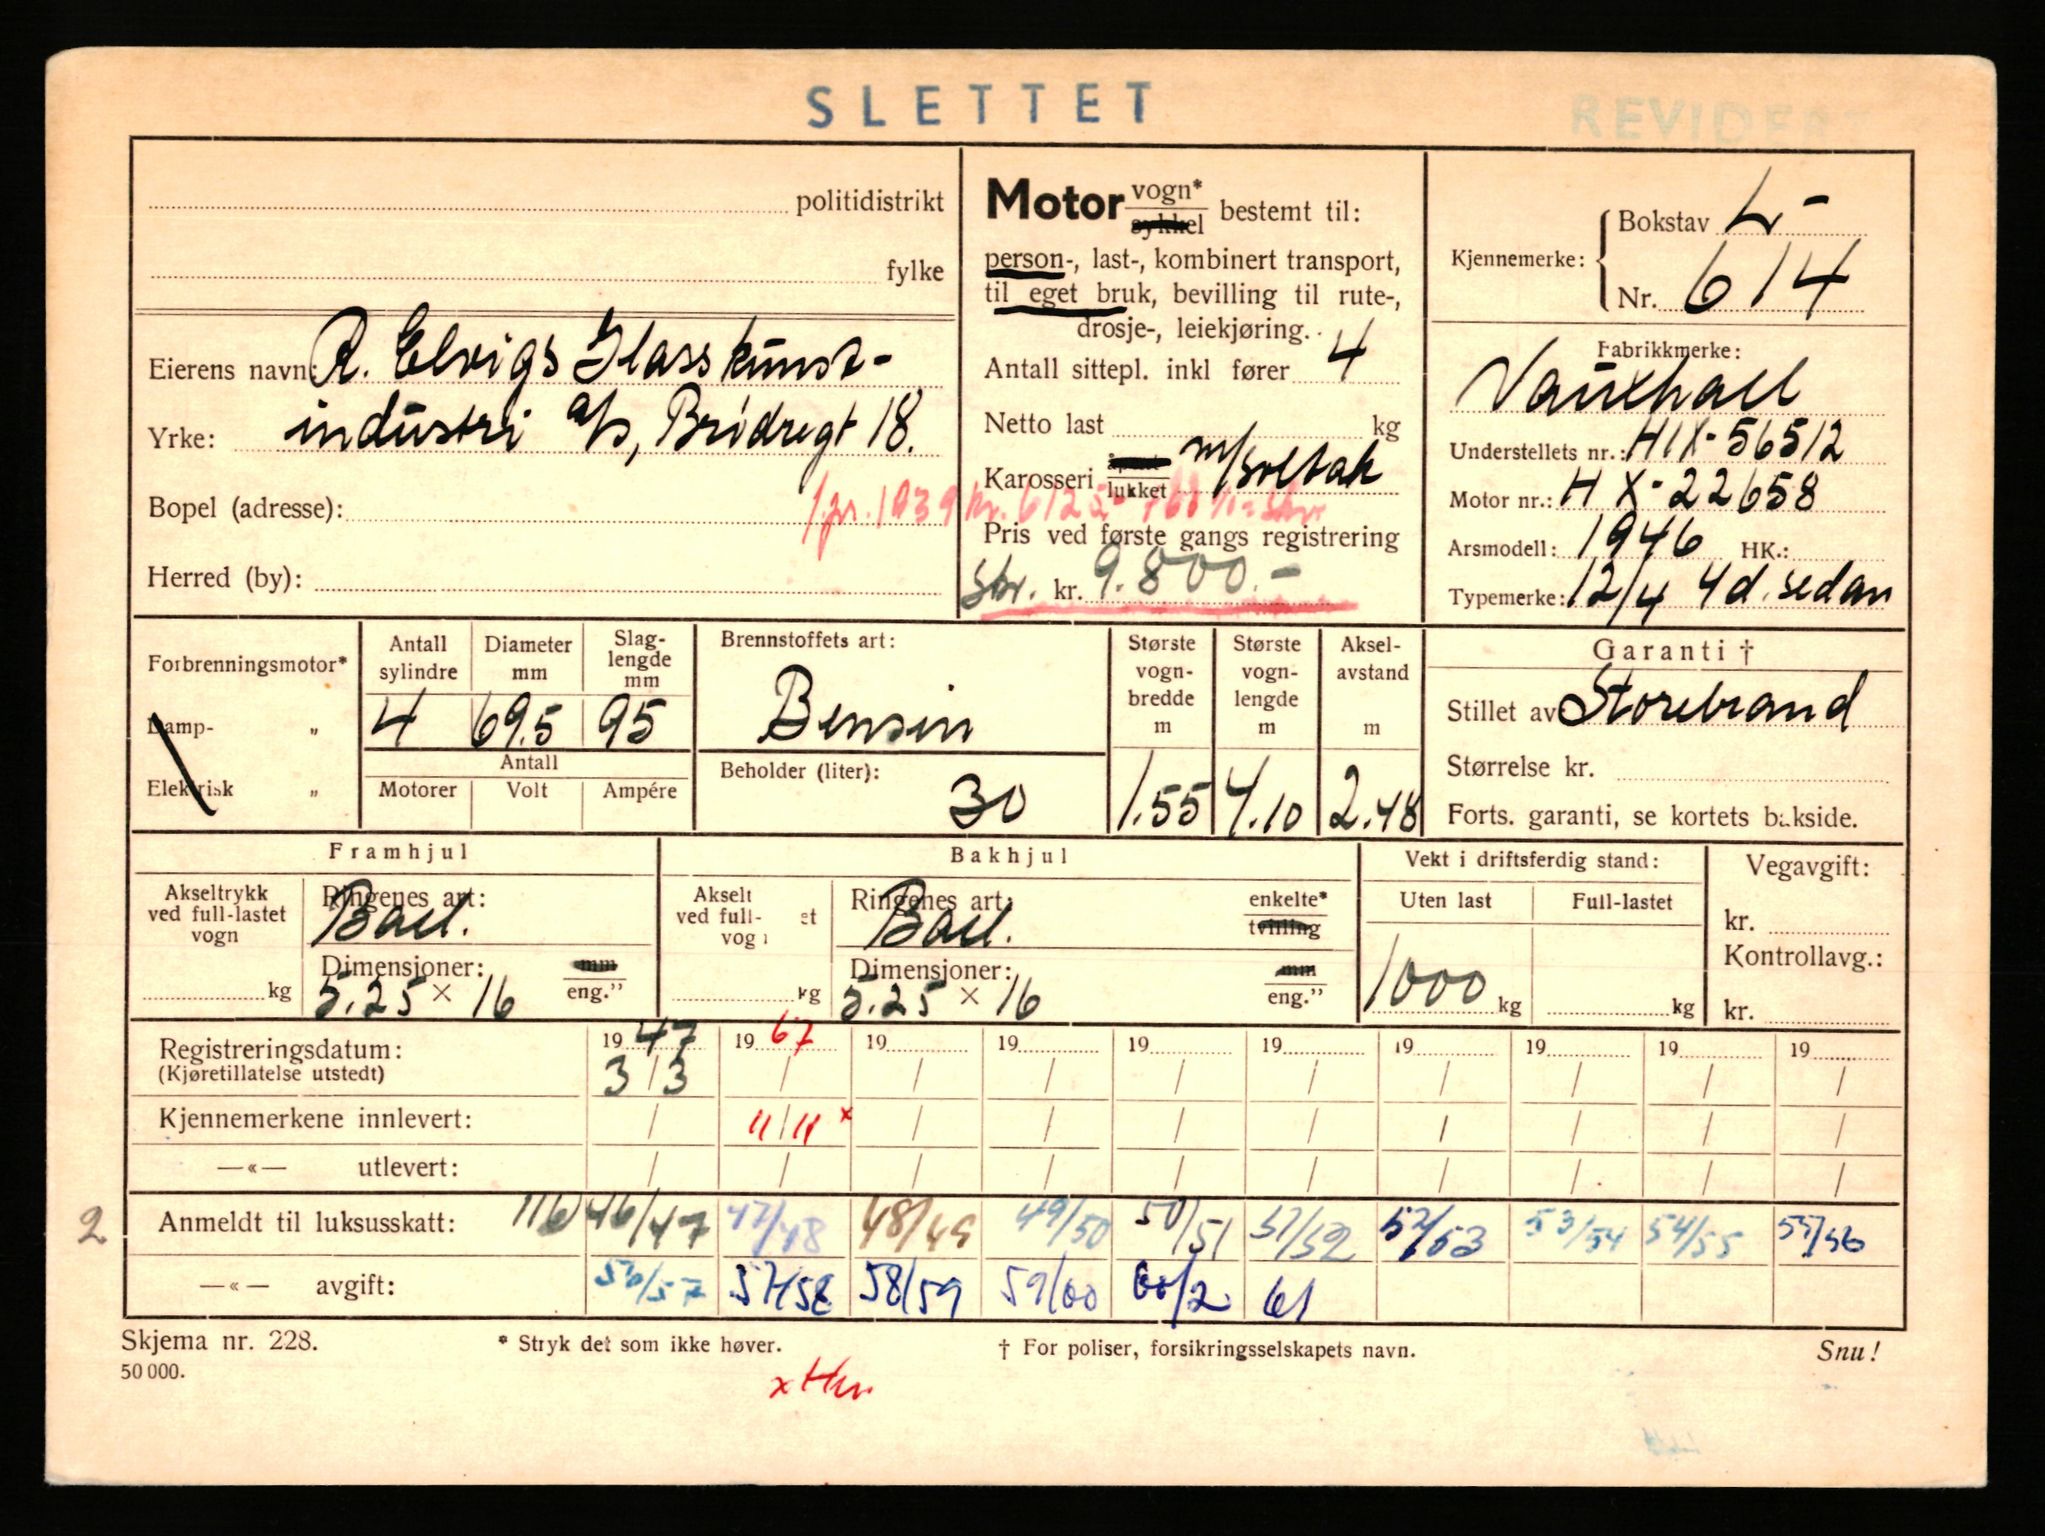 SLETTET
REVIDERT
politidistrikt
fylke
Eierens navn: R. Elvigs Glasskunst-
Yrke: industri A/S, Brødregt 18.
Bopel (adresse):
Herred (by):
Motor vogn* sykkel bestemt til:
person-, last-, kombinert transport,
til eget bruk, bevilling til rute-,
drosje-, leiekjøring.
Antall sittepl. inkl fører 4
Netto last kg
Karosseri åpent lukket m/soltak
pr. 1939 kr. 6125
Pris ved første gangs registrering
Skr. kr. 9.800.-
Kjennemerke: Bokstav L-
Nr. 614
Fabrikkmerke:
Vauxhall
Understellets nr.: HIX-56512
Motor nr.: HX-22658
Årsmodell: 1946 HK.:
Typemerke: 12/4 4d. sedan
Forbrenningsmotor*
Damp- „
Elektrisk „
Antall sylindre
Diameter mm
Slaglengde mm
4 69.5 95
Antall
Motorer Volt Ampére
Brennstoffets art:
Bensin
Beholder (liter):
30
Største vognbredde m
Største vognlengde m
Akselavstand m
1.55 4.10 2.48
Garanti †
Stillet av Storebrand
Størrelse kr.
Forts. garanti, se kortets bakside.
Framhjul
Akseltrykk
ved full-lastet
vogn
kg
Ringenes art:
Ball.
Dimensjoner: mm eng.”
5.25 × 16
Bakhjul
Akselt
ved full- et
vog
kg
Ringenes art: enkelte* tvilling
Ball.
Dimensjoner: mm eng.”
5.25 × 16
Vekt i driftsferdig stand:
Uten last Full-lastet
1000 kg kg
Vegavgift:
kr.
Kontrollavg.:
kr.
Registreringsdatum: 19 47 19 67 19 19 19 19 19 19 19 19
(Kjøretillatelse utstedt) 3/3 / / / / / / / / /
Kjennemerkene innlevert: / 11/11 x / / / / / / / /
—«— utlevert: / / / / / / / / / /
2 Anmeldt til luksusskatt: 116 46/47 47/48 48/49 49/50 50/51 51/52 52/53 53/54 54/55 55/56
—«— avgift: 56/57 57/58 58/59 59/60 60/2 61
Skjema nr. 228. * Stryk det som ikke høver. † For poliser, forsikringsselskapets navn. Snu!
50 000.